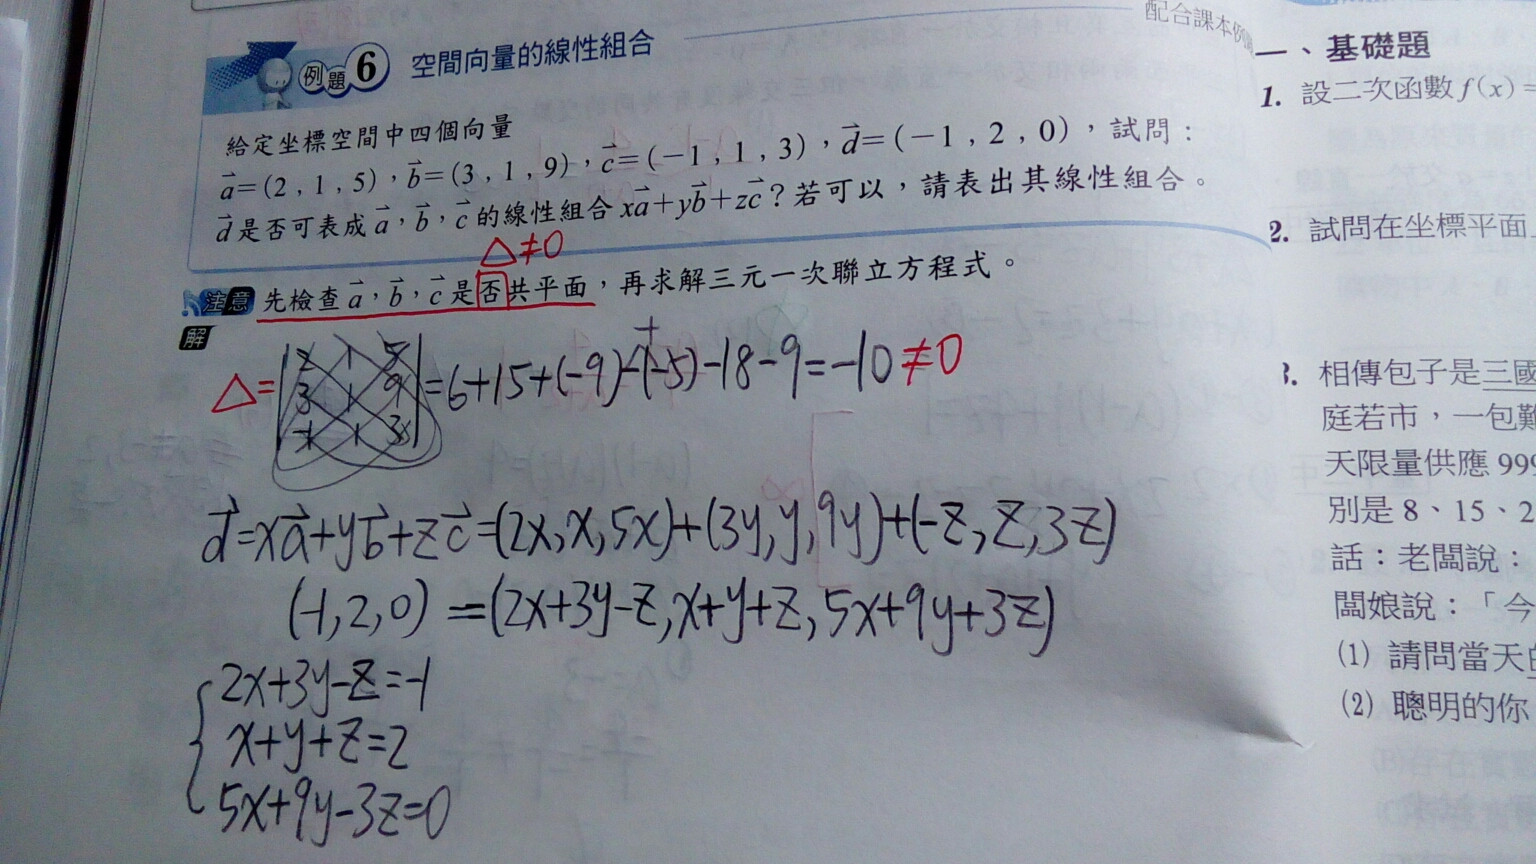 配合課本例
例題 6 空間向量的線性組合
給定坐標空間中四個向量
a⃗=(2,1,5),b⃗=(3,1,9),c⃗=(−1,1,3),d⃗=(−1,2,0),試問:
d⃗是否可表成a⃗,b⃗,c⃗的線性組合xa⃗+yb⃗+zc⃗?若可以,請表出其線性組合。
△≠0
注意 先檢查a⃗,b⃗,c⃗是否共平面,再求解三元一次聯立方程式。
解
△=|2 1 5
3 1 9
-1 1 3|=6+15+(-9)-(-5)-18-9=-10≠0
d⃗=xa⃗+yb⃗+zc⃗=(2x,x,5x)+(3y,y,9y)+(-z,z,3z)
(-1,2,0)=(2x+3y-z,x+y+z,5x+9y+3z)
2x+3y-z=-1
x+y+z=2
5x+9y-3z=0
一、基礎題
1. 設二次函數f(x)=
2. 試問在坐標平面
3. 相傳包子是三國
庭若市,一包難
天限量供應999
別是8、15、2
話:老闆說:
闆娘說:「今
(1) 請問當天的
(2) 聰明的你